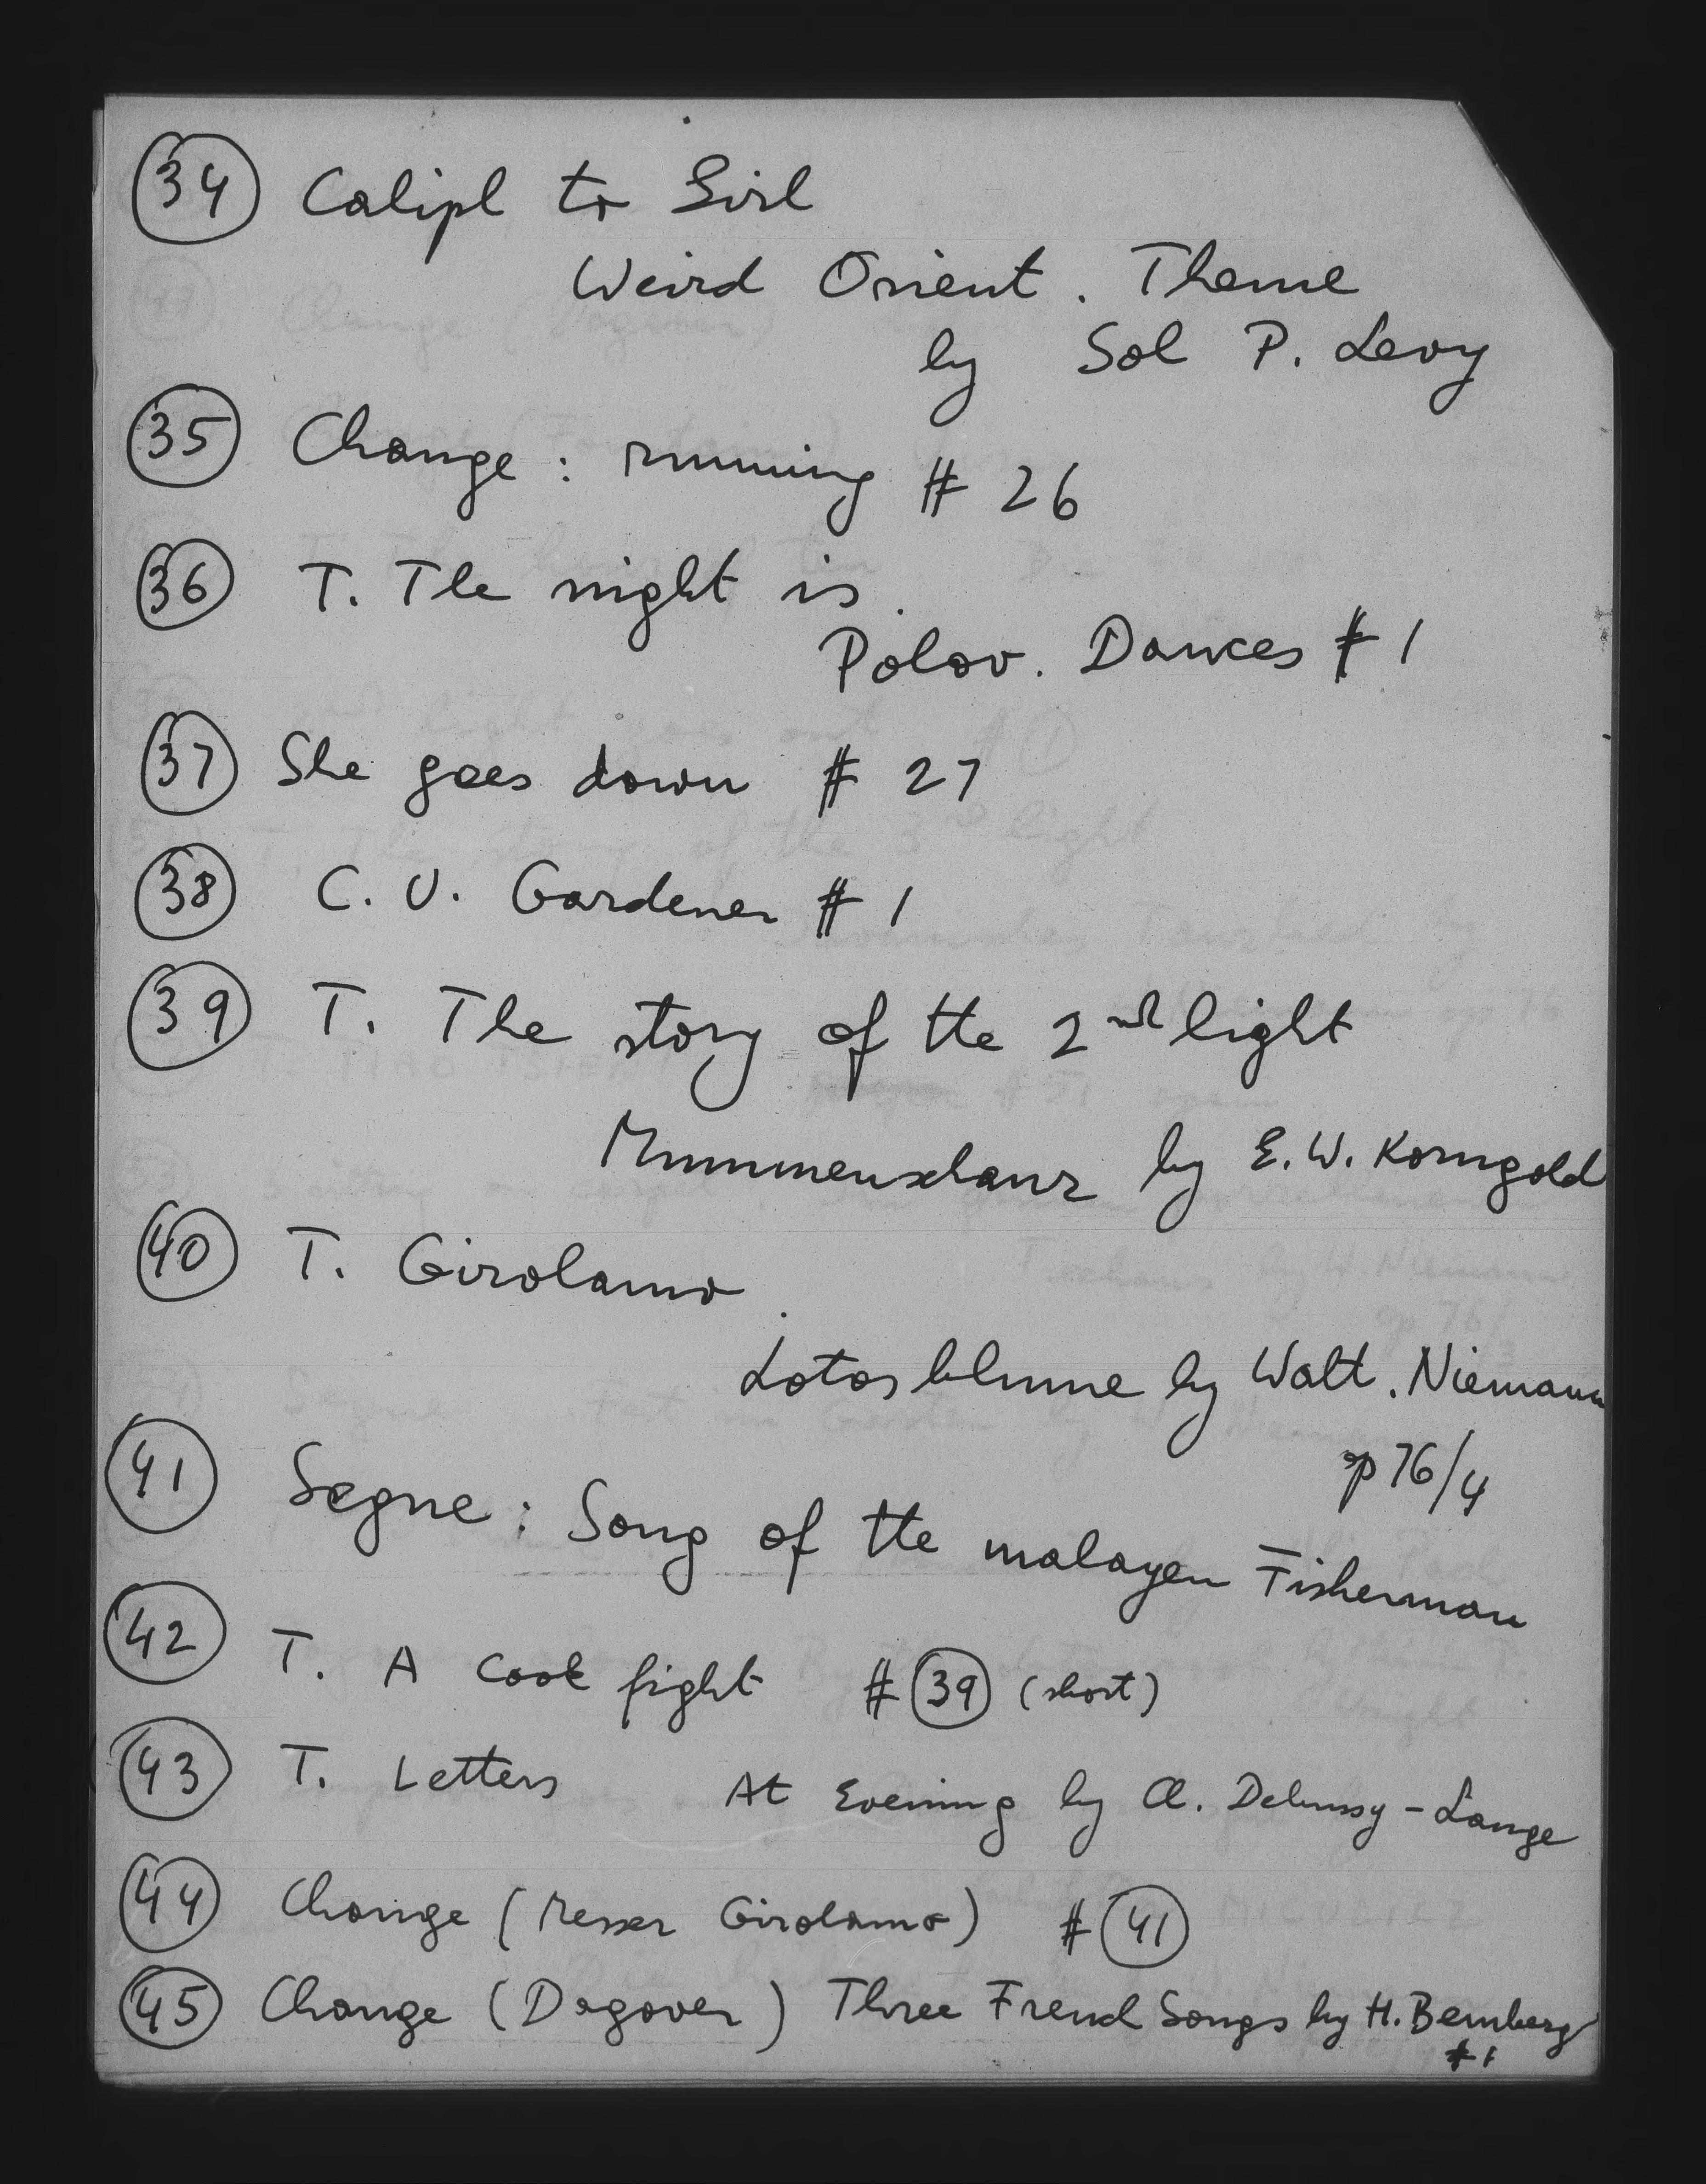 34 Caliph to Girl
Weird Orient. Theme
by Sol P. Levy
35 Change: running # 26
36 T. The night is.
Polov. Dances # 1
37 She goes down # 27
38 C. U. Gardener # 1
39 T. The story of the 2nd light
Mummenschanz by E. W. Korngold
40 T. Girolamo.
Lotosblume by Walt. Niemann
op 76/4
41 Segue: Song of the malayen Fisherman
42 T. A cook fight # 39 (short)
43 T. Letters At Evening by Cl. Debussy - Lange
44 Change (Messer Girolamo) # 41
45 Change (Dagover) Three French Songs by H. Bemberg
# 1